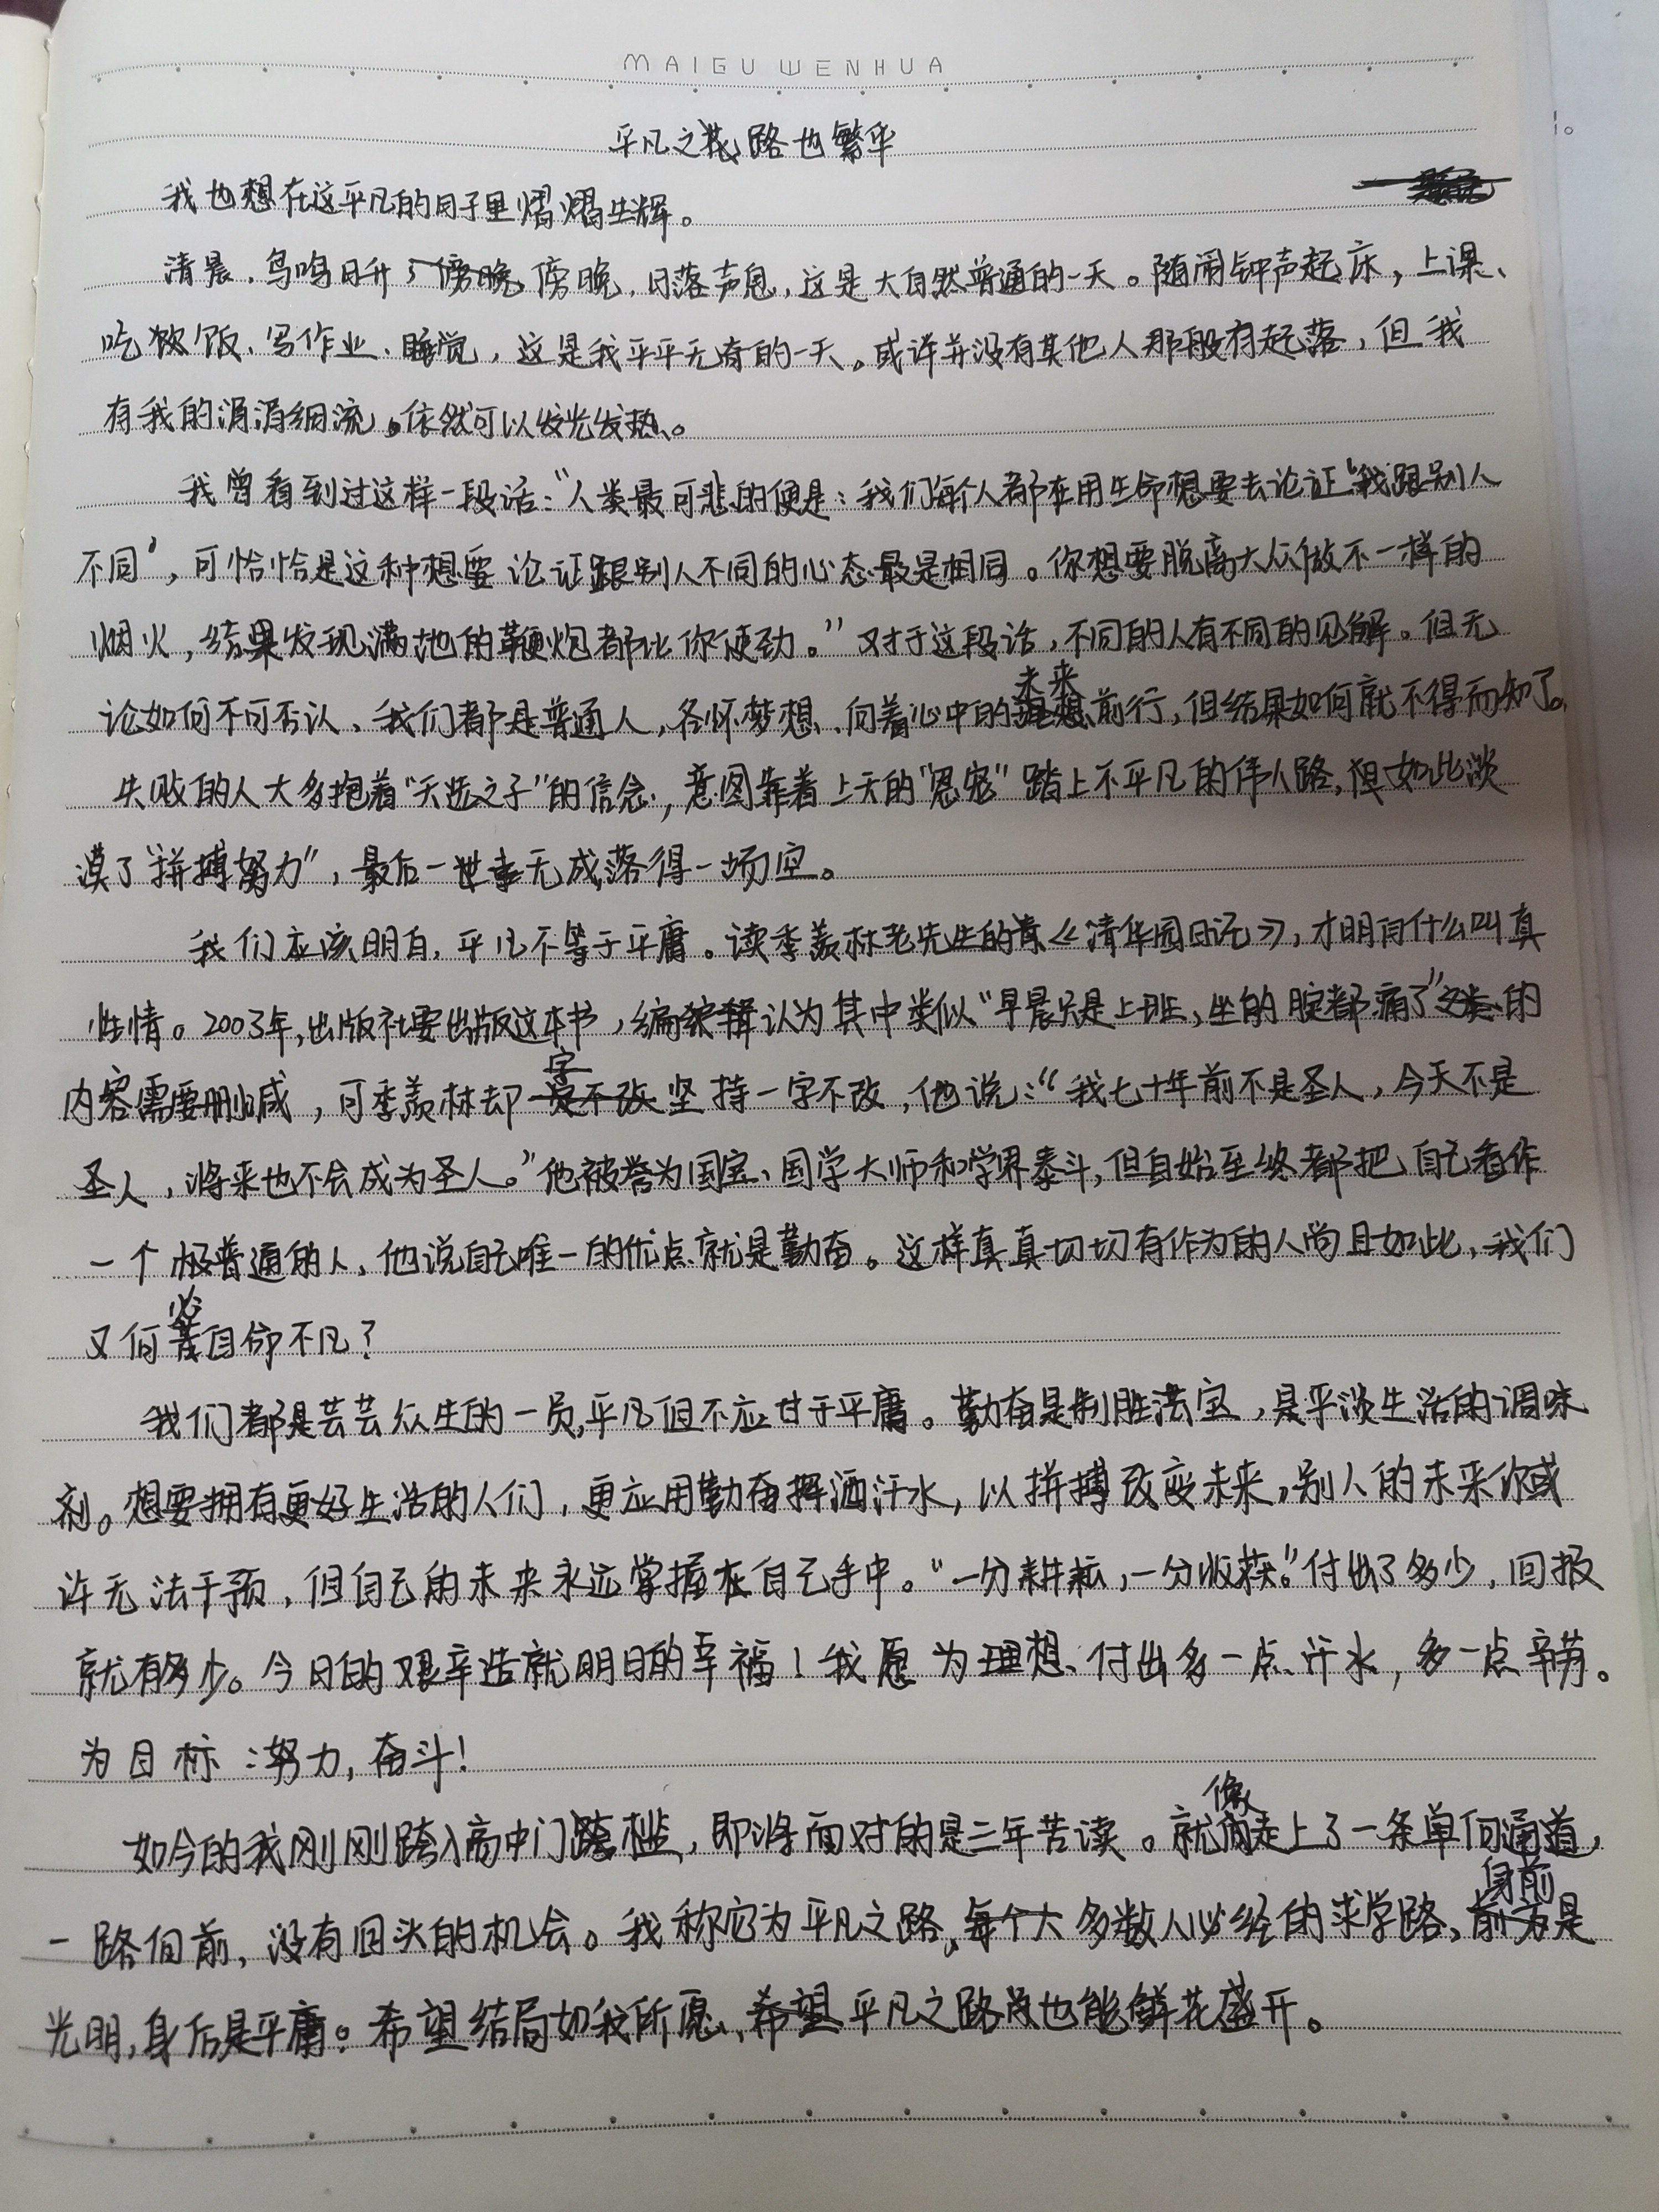 MAIGU WENHUA
平凡之路也繁华
我也想在这平凡的日子里熠熠生辉。
清晨，鸟鸣日升；傍晚，日落声息，这是大自然普通的一天。随闹钟声起床，上课、
吃饭、写作业、睡觉，这是我平平无奇的一天。或许并没有其他人那般有起落，但我
有我的涓涓细流。依然可以发光发热。
我曾看到过这样一段话：“人类最可悲的便是：我们每个人都在用生命想要去论证‘我跟别人
不同’，可恰恰是这种想要论证跟别人不同的心态最是相同。你想要脱离大众做不一样的
烟火，结果发现满地的鞭炮都比你使劲。”对于这段话，不同的人有不同的见解。但无
论如何不可否认、我们都是普通人，各怀梦想、向着心中的未来前行，但结果如何就不得而知了。
失败的人大多抱着“天选之子”的信念，意图靠着上天的“恩宠”踏上不平凡的伟人路，但如此淡
漠了“拼搏努力”，最后一事无成落得一场空。
我们应该明白，平凡不等于平庸。读季羡林老先生的《清华园日记》，才明白什么叫真
性情。2003年，出版社要出版这本书，编辑认为其中类似“早晨只是上班，坐的腚都痛了”之类的
内容需要删减，可季羡林却坚持一字不改，他说：“我七十年前不是圣人，今天不是
圣人，将来也不会成为圣人。”他被誉为国宝、国学大师和学界泰斗，但自始至终都把自己看作
一个极普通的人，他说自己唯一的优点就是勤奋。这样真真切切有作为的人尚且如此，我们
又何必自命不凡？
我们都是芸芸众生的一员，平凡但不应甘于平庸。勤奋是制胜法宝，是平淡生活的调味
剂。想要拥有更好生活的人们，更应用勤奋挥洒汗水，以拼搏改变未来，别人的未来你或
许无法干预，但自己的未来永远掌握在自己手中。“一分耕耘，一分收获。”付出了多少，回报
就有多少。今日的艰辛造就明日的幸福！我愿为理想、付出多一点汗水，多一点辛劳。
为目标：努力，奋斗！
如今的我刚刚跨入高中门槛，即将面对的是三年苦读。就像走上了一条单向通道，
一路向前，没有回头的机会。我称它为平凡之路，大多数人必经的求学路、身前是
光明，身后是平庸。希望结局如我所愿、平凡之路也能鲜花盛开。